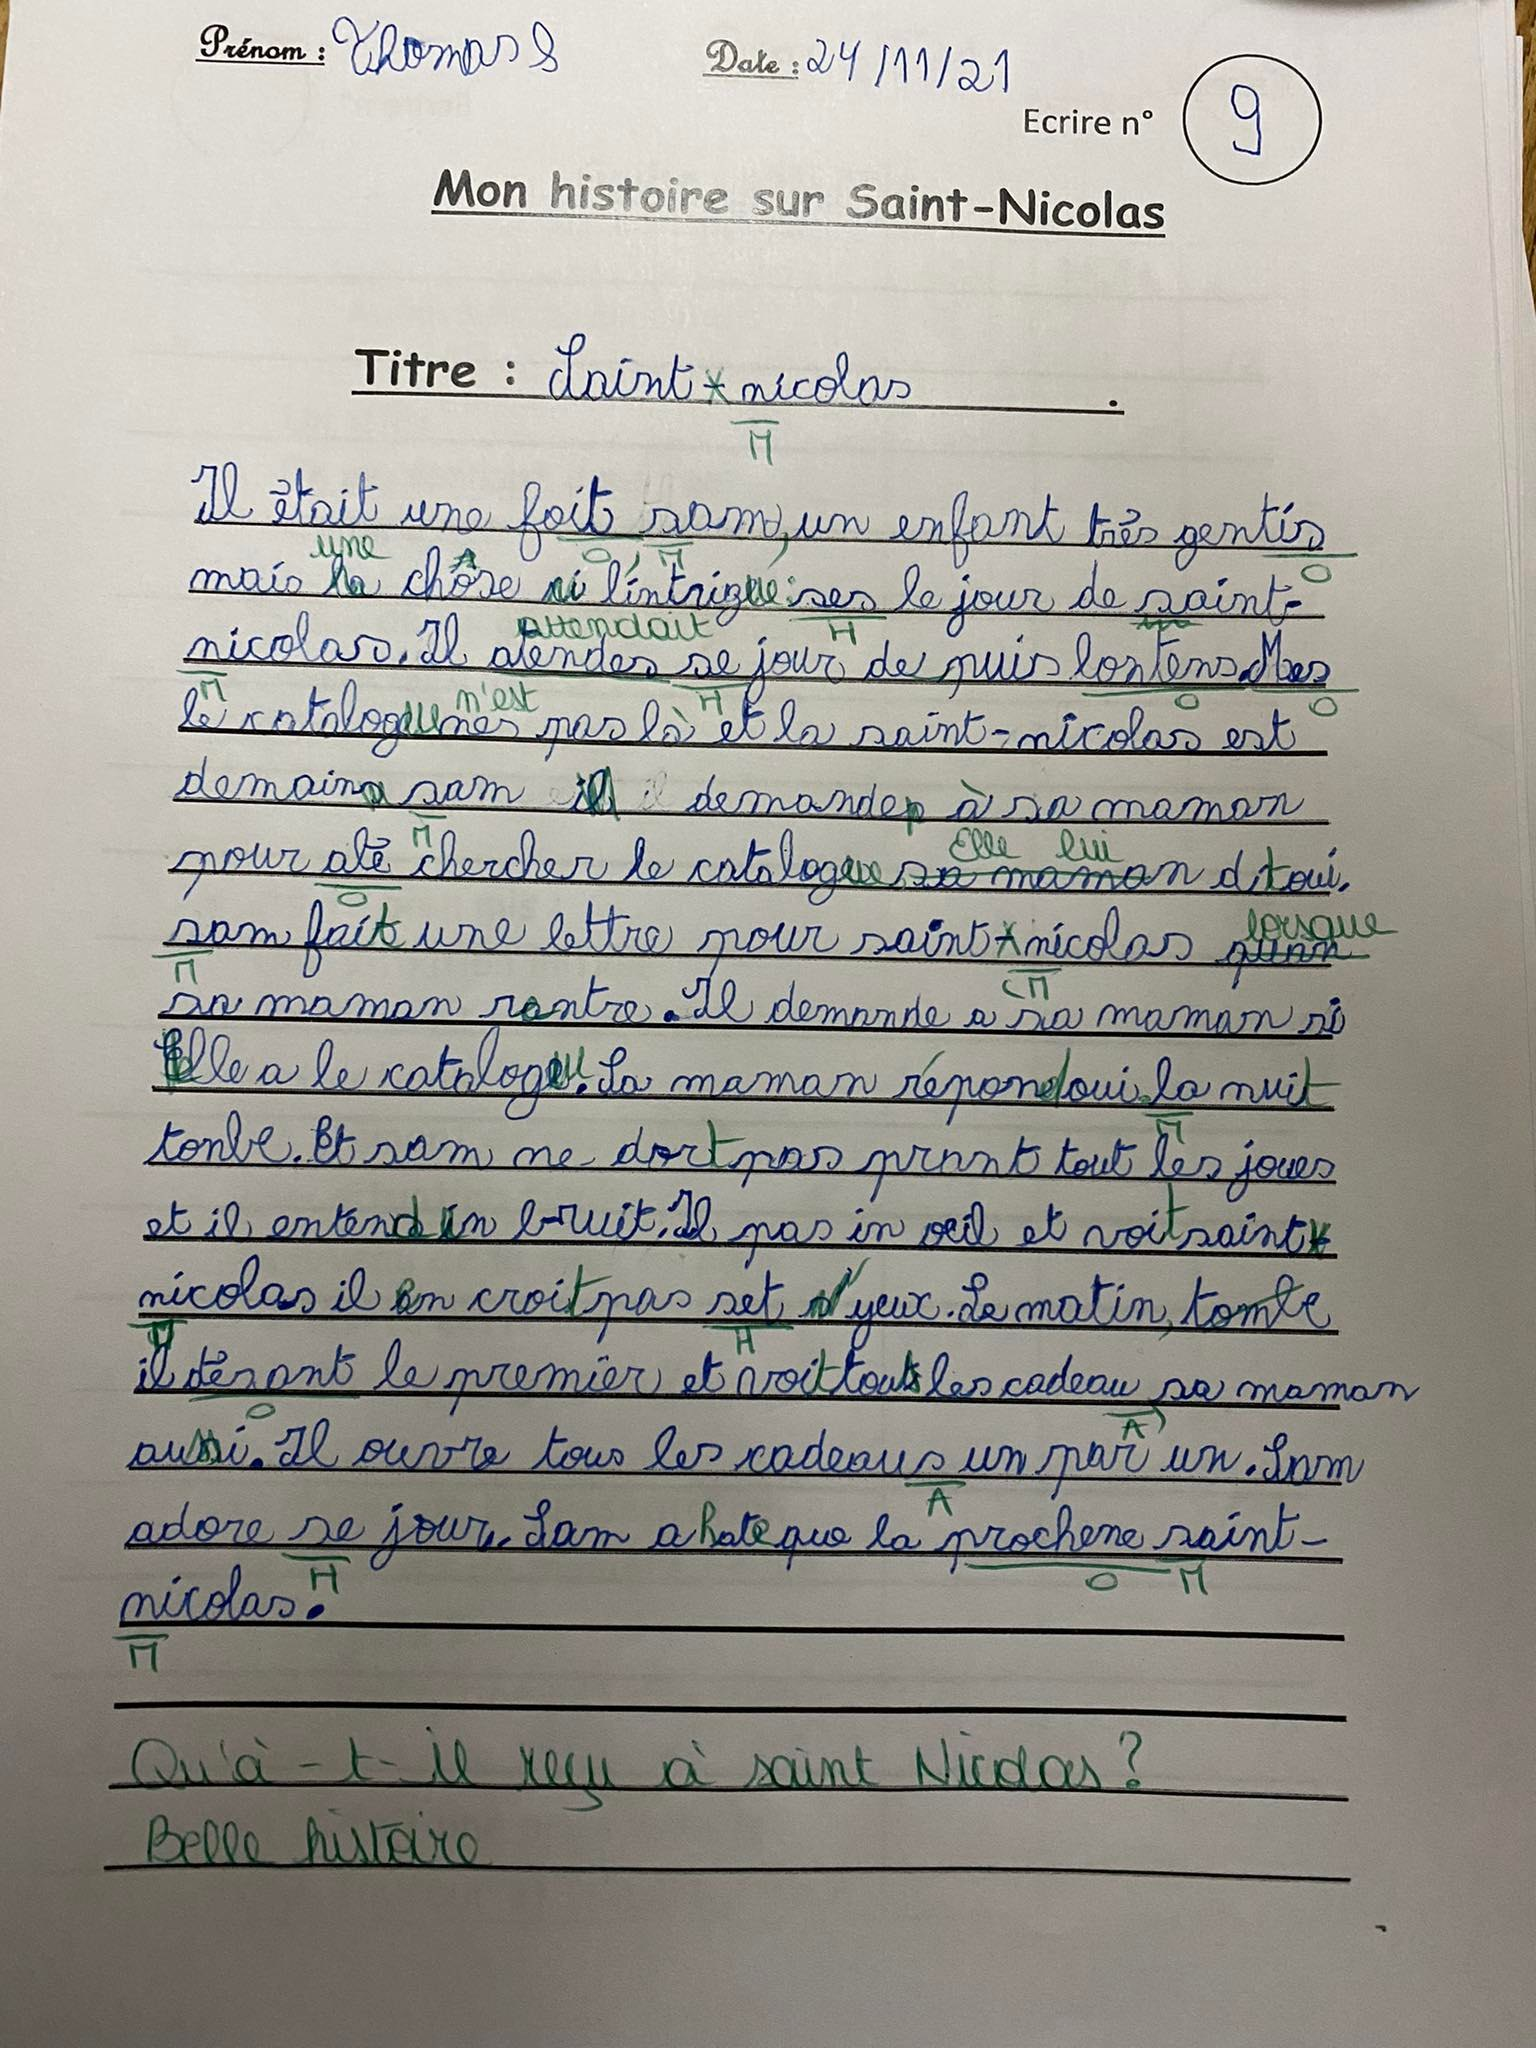 Prénom : Thomas S
Date : 24/11/21
Ecrire n° 9
Mon histoire sur Saint-Nicolas
Titre : Saint * nicolas .
M
Il était une foit sam, un enfant très gentis
O M O
une
mais chose l'intrigue : ses le jour de saint-
H
attendait
nicolas. Il atendes se jour de puis lontens. Mes
M H O O
n'est
le catalogue nes pas là et la saint-nicolas est
demain sam il demande à sa maman
M
Elle lui
pour alé chercher le catalogue sa maman dit oui.
O
lorsque
sam fait une lettre pour saint * nicolas quan
M M
sa maman rentre. Il demande a sa maman si
Elle a le catalogue. La maman répond oui. la nuit
M
tonbe. Et sam ne dort pas prant tout les joues
et il entend un bruit. Il pas in oeil et voit saint *
nicolas il en croit pas set yeux. Le matin, tombe
M H
il désant le premier et voit tous les cadeau sa maman
O A
aussi. Il ouvre tous les cadeaus un par un. Sam
A
adore se jour. Sam a hate que la prochene saint-
H O M
nicolas.
M
Qu'à-t-il reçu à saint Nicolas ?
Belle histoire